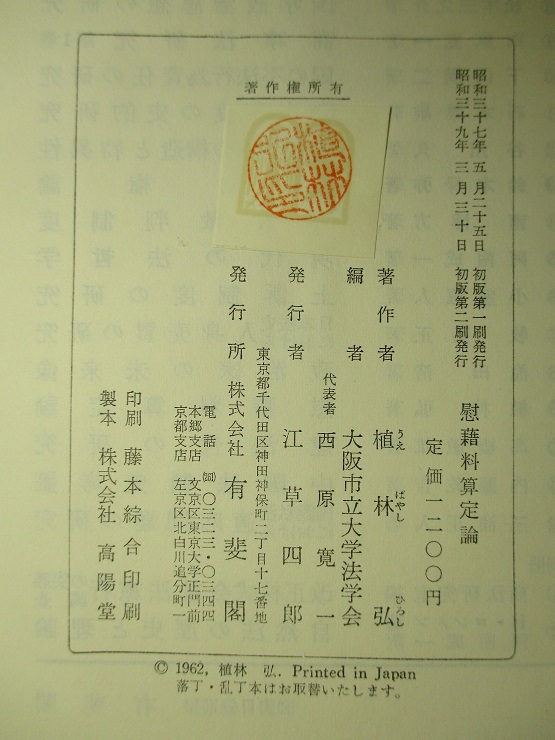 著作権所有
植林弘印
昭和三十七年 五 月二十五日 初版第一刷発行
昭和三十九年 三 月三十日 初版第二刷発行
慰藉料算定論
定価一二〇〇円
著作者 植林 弘
うえ ばやし ひろし
編者 大阪市立大学法学会
代表者 西原寛一
発行者 江草四郎
東京都千代田区神田神保町二丁目十七番地
発行所 株式会社 有斐閣
電話 ㈹〇三二三・〇三四四
本郷支店 文京区東京大学正門前
京都支店 左京区北白川追分町一
印刷 藤本綜合印刷
製本 株式会社 高陽堂
© 1962, 植林 弘. Printed in Japan
落丁・乱丁本はお取替いたします。